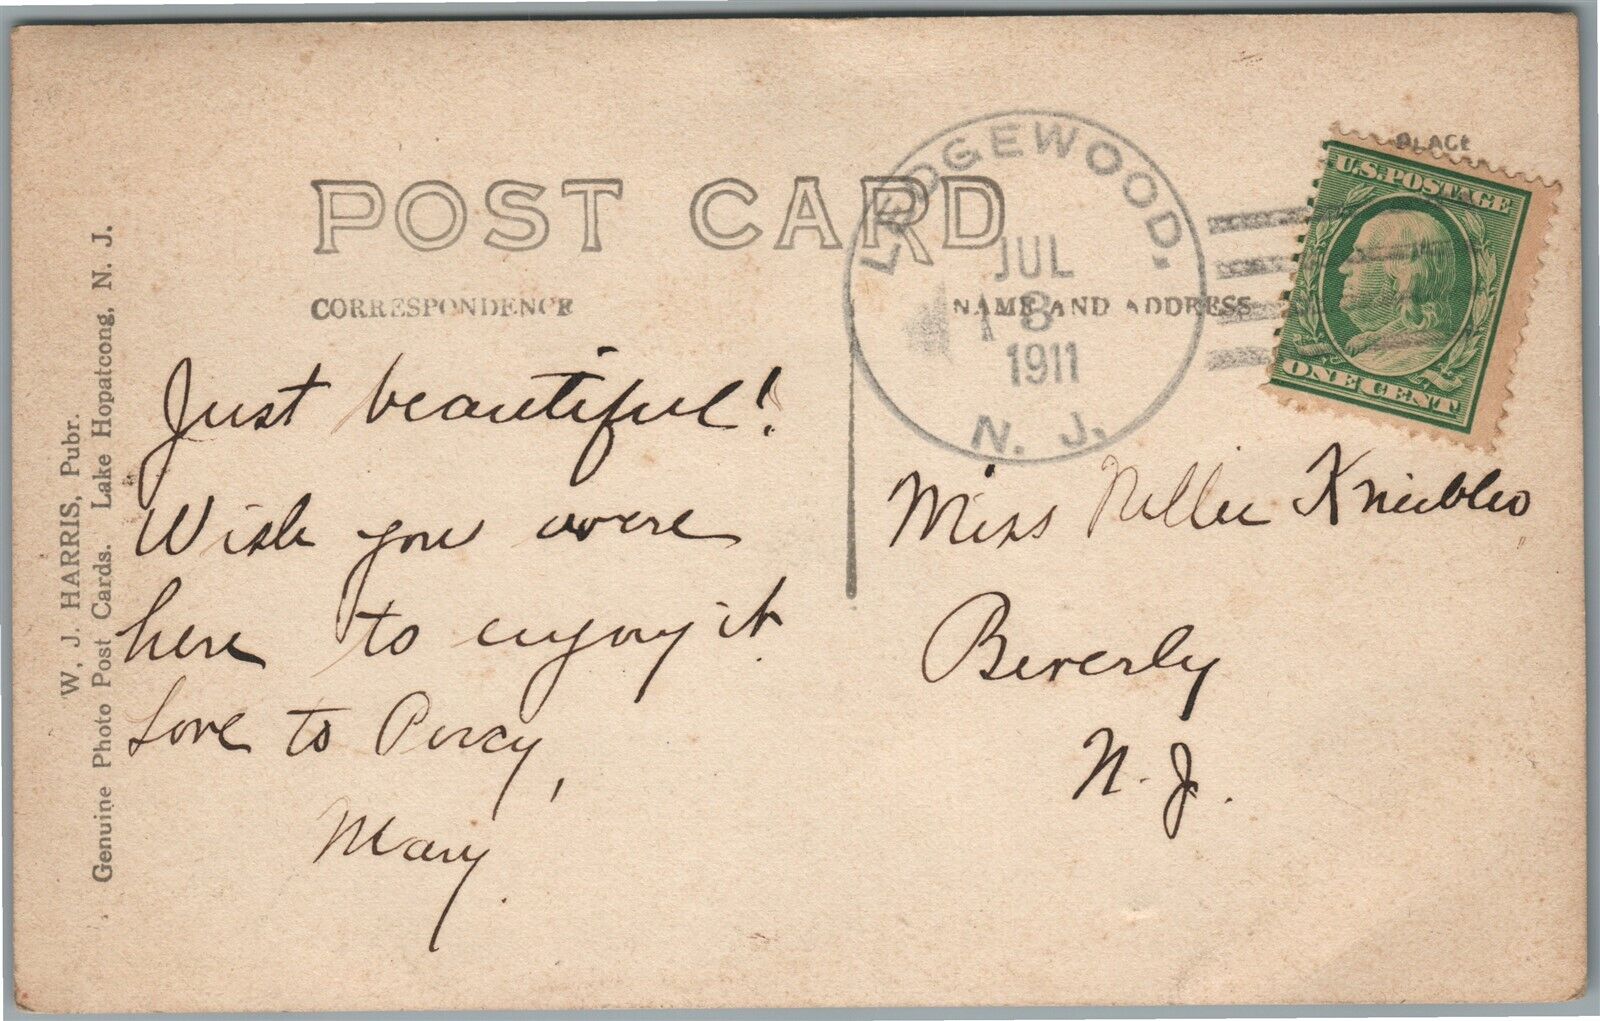 POST CARD
CORRESPONDENCE
NAME AND ADDRESS
PLACE
U.S. POSTAGE
ONE CENT
LEDGEWOOD,
JUL
8
1911
N. J.
Just beautiful!
Wish you were
here to enjoy it.
Love to Percy,
Mary.
Miss Nellie
Beverly
N. J.
W. J. HARRIS, Pubr.
Genuine Photo Post Cards. Lake Hopatcong, N. J.